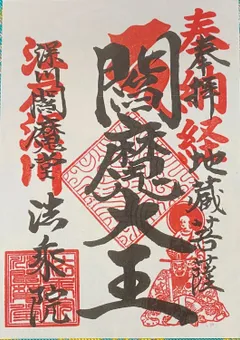 奉拝
奉納経
地蔵菩薩
閻魔大王
深川閻魔堂
深川
法乗院